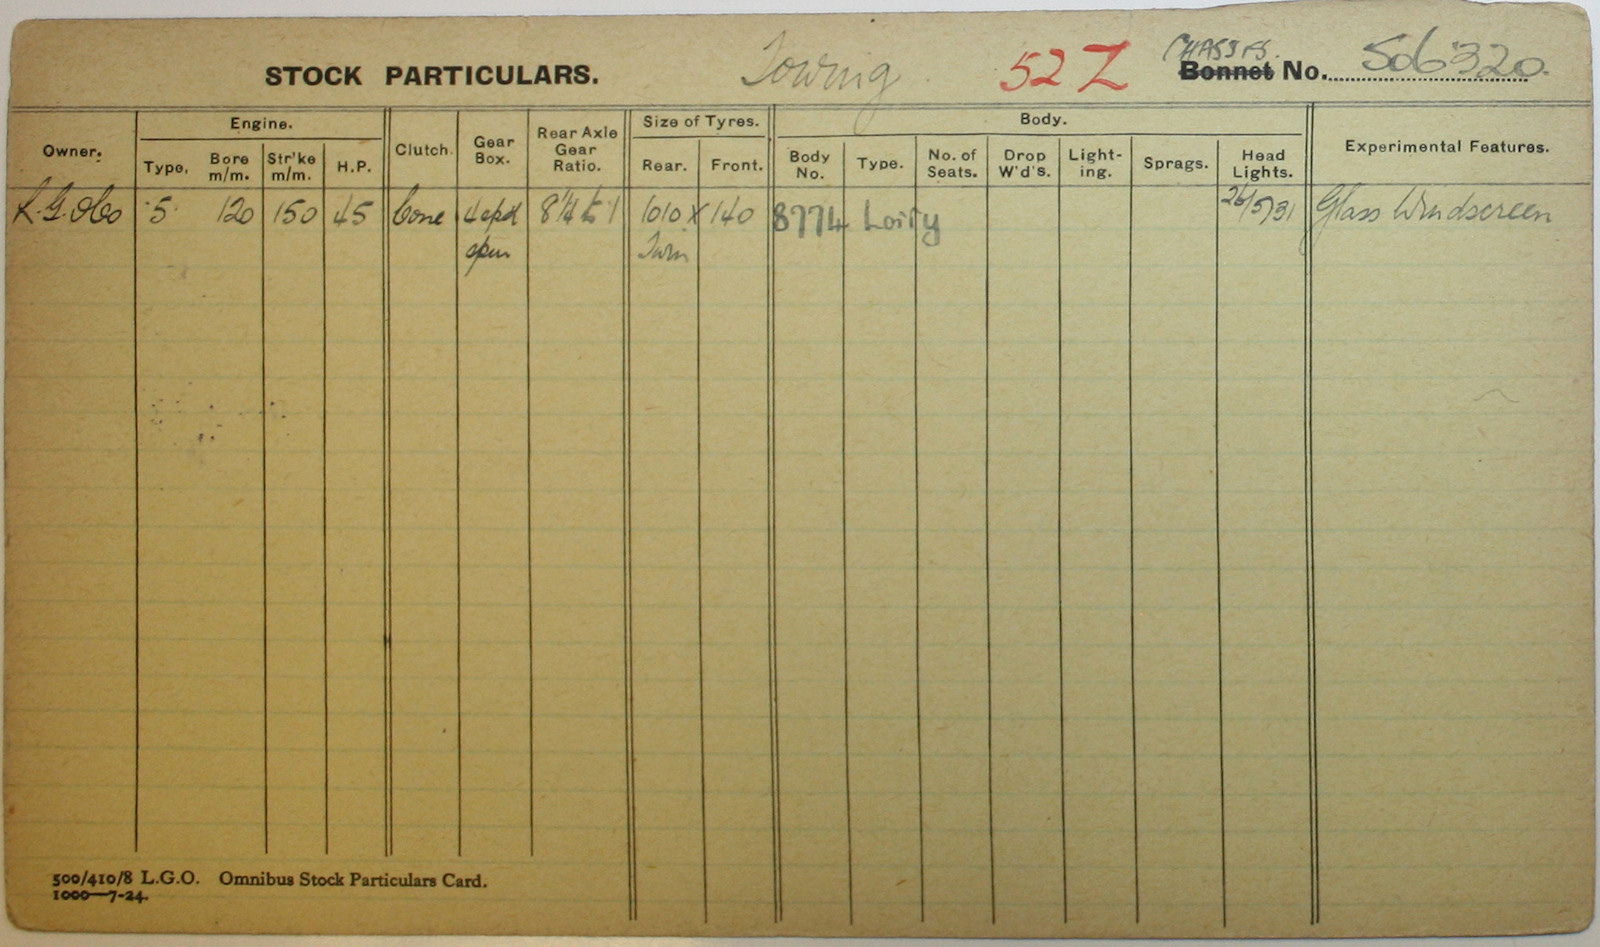 STOCK PARTICULARS. Towing 52Z CHASSIS. Bonnet No. 506320.
Owner. Engine. Clutch. Gear Box. Rear Axle Gear Ratio. Size of Tyres. Body. Experimental Features.
Type. Bore m/m. Str'ke m/m. H.P. Rear. Front. Body No. Type. No. of Seats. Drop W'd's. Light-ing. Sprags. Head Lights.
L.G.OCo 5 120 150 45 Cone 4 spd 8 1/4 to 1 1010 X 140 8774 Lorry 26/5/31 Glass Windscreen
open Twin
500/410/8 L.G.O. Omnibus Stock Particulars Card.
1000—7-24.